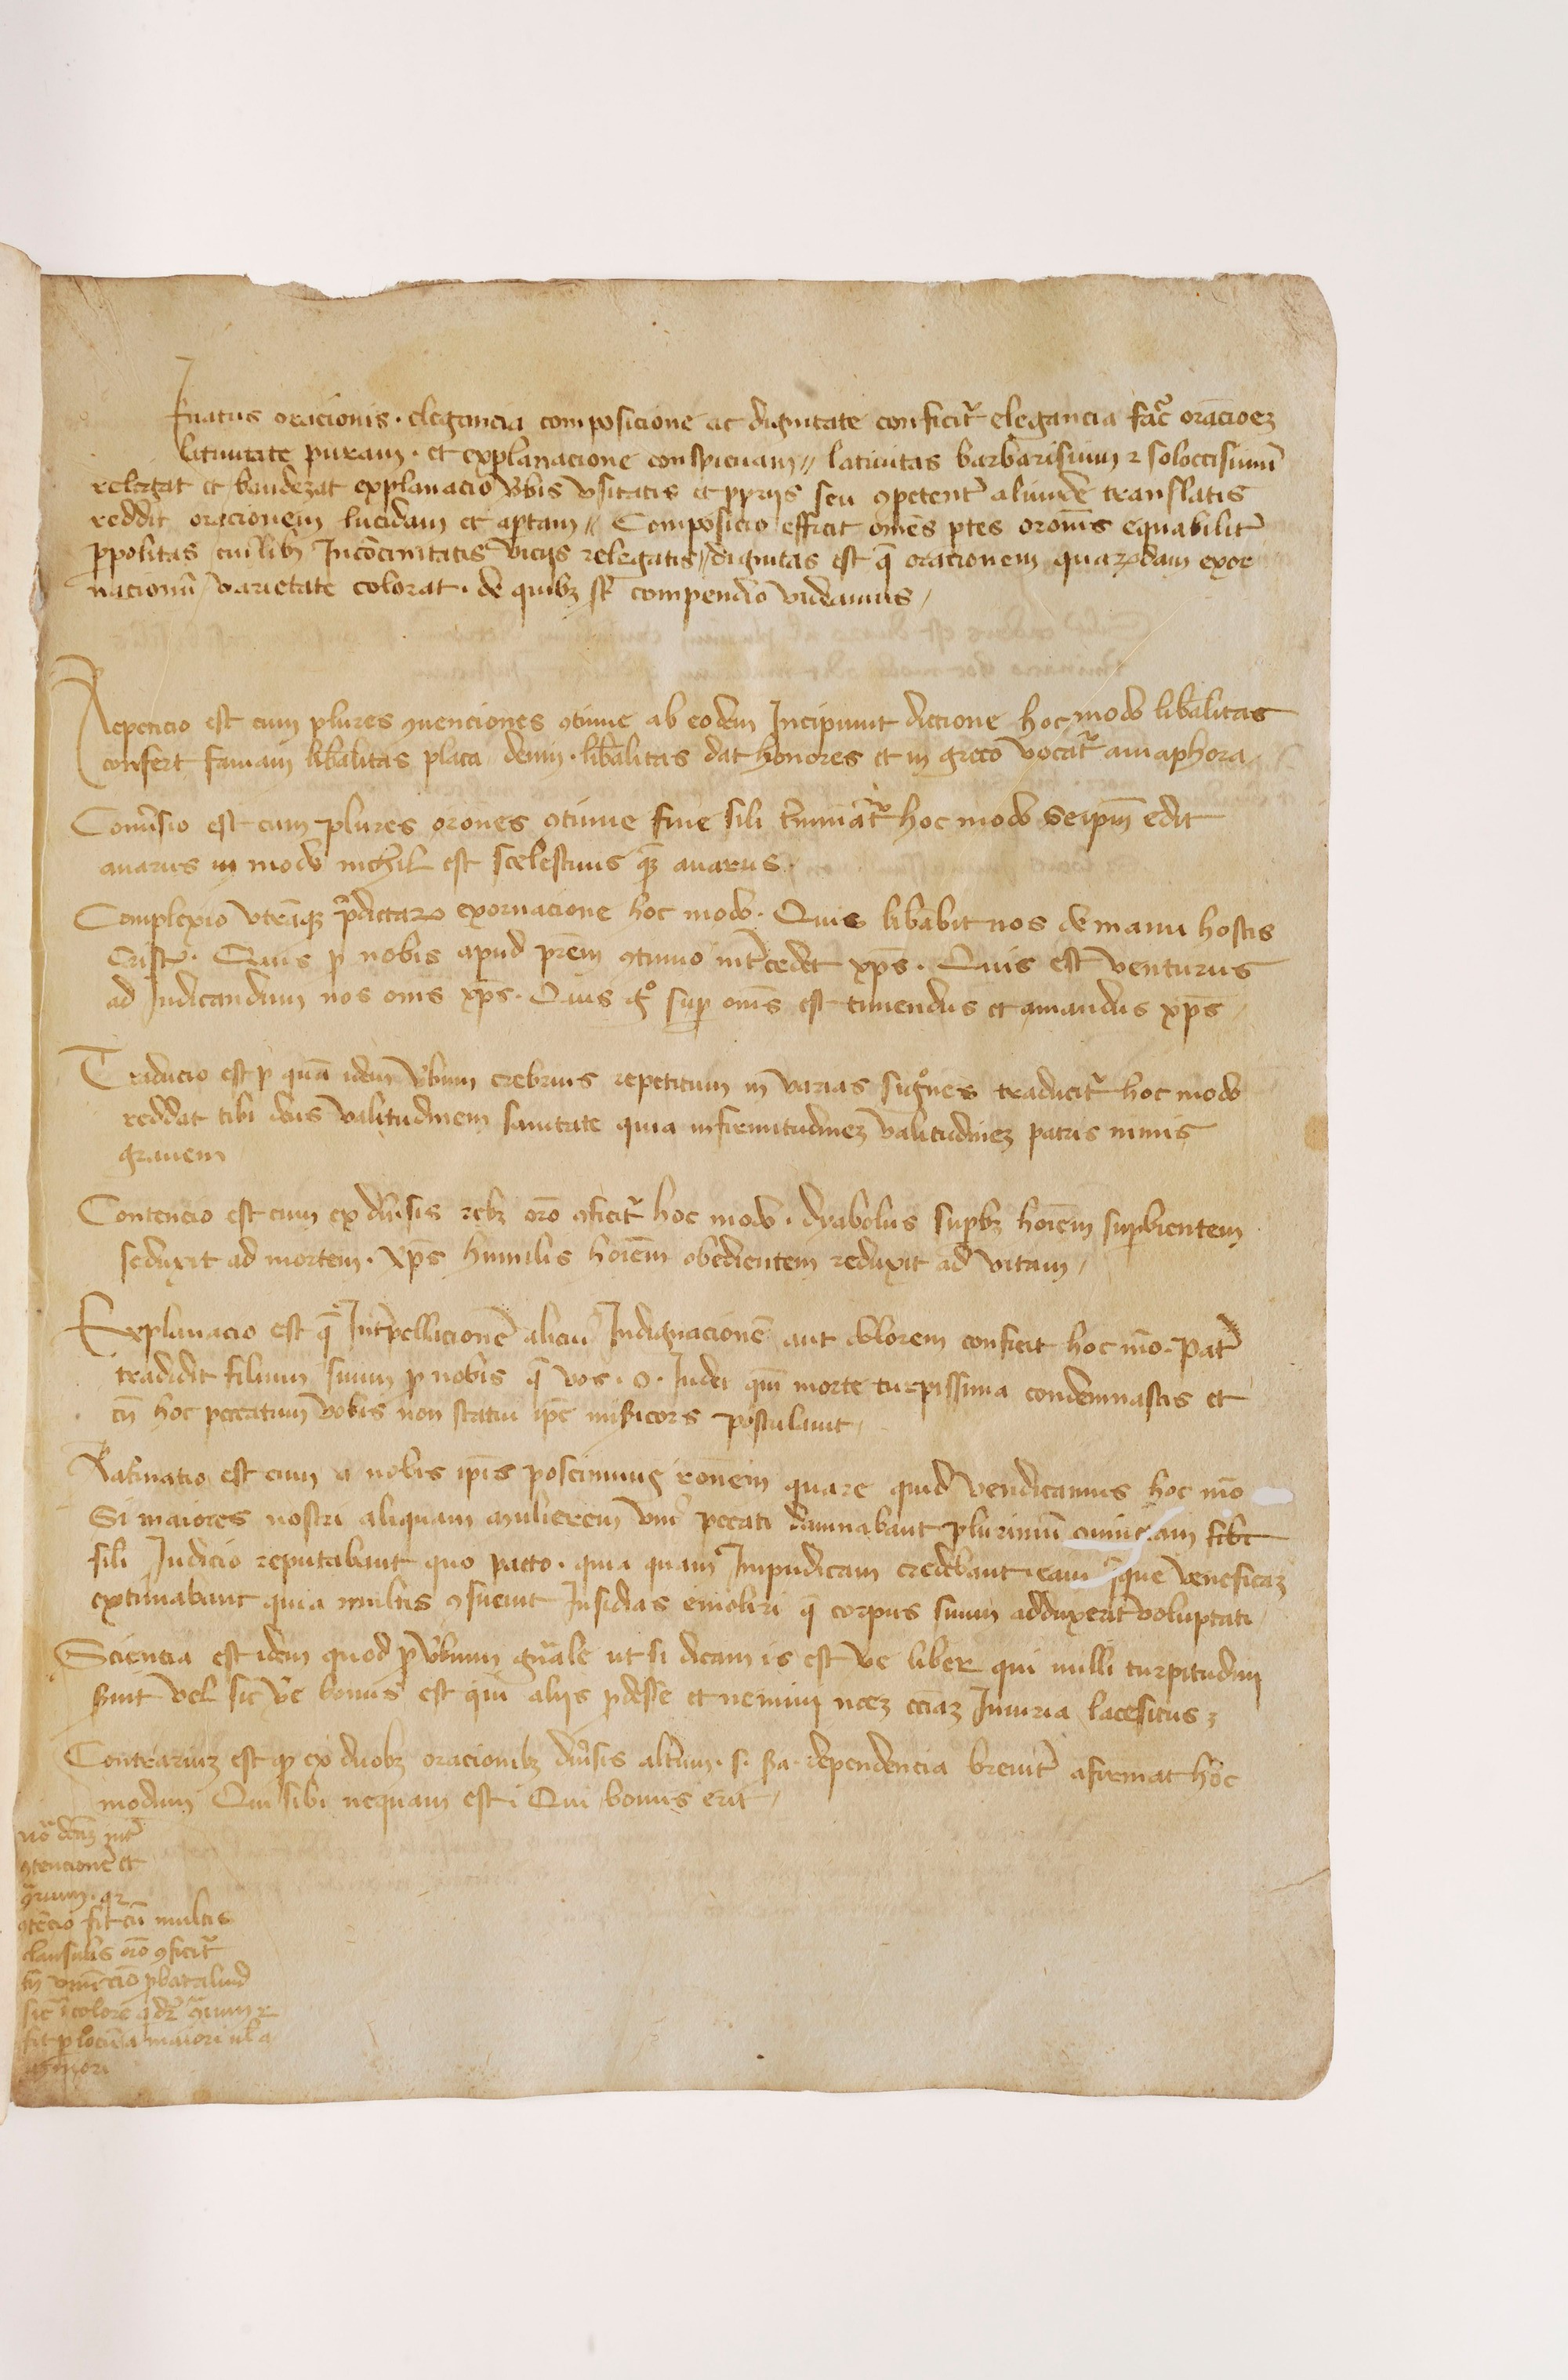 ornatus oracionis. elegancia composicione ac dignitate conficit᷑ elegancia fac̃ orac̄ioez
latinitate puram. et explanacione conspicuam// latinitas barbarisimum ⁊ soloecisimum̄
relegat et explanacio v̄bis vsitatis et ꝓprijs seu ꝯpetent᷑ aliunde translatis
reddit oracionem lucidam et aptam// Composicio efficit om̄es ꝑtes oro̅nis equabilit᷑
ꝑpolitas Incōcinitatis vicijs relegatis// dignitas est q̄ oracionem quarūdam exor
nacionū varietate colorat. de quibꝫ compendio videamus/
Repeticio est cum plures ꝯtinue ab eodem Incipiunt dictione hoc modo lib̄alitas
confert famam lib̄alitas placa deum. lib̄alitas dat honores et in greco vocat᷑ anaphora
Conv̄sio est cum plures oro̅nes ꝯtinue fine sili t̄minat᷑ hoc modo Seip̄m edit
auarus in modo nichil est scelestius qꝫ auarus.
Complexio vtrāqꝫ p̄dictaꝝ exornacione hoc modo. Quis lib̄abit nos de manu hostis
Quis ꝓ nobis apud pr̄em ꝯtinuo int᷑cedet xp̄s. Quis est venturus
ad Iudicandum nos om̄s xp̄s. Quis gͦ suꝑ om̄s est timendus et amandus xp̄s
Traducio est ꝑ quā idem v̄bum crebrius repetitum in varias sig̅nes traducit᷑ hoc modo
reddat tibi deus valitudinem sanitate quia infirmitudinez valitudinez patris nimis
grauem
Contencio est cum ex diu̅sis rebꝫ oro̅ ꝯficit᷑ hoc modo. dyabolus suꝑbꝫ hoi̅em suꝑbientem
seduxit ad mortem. xp̄s humilis hoi̅em obedientem reduxit ad vitam/
Explanacio est q̄ Int᷑pellacionē alicui᷒ Indignacionē aut dolorem conficit hoc mō. Pat᷑
tradidit filium suum ꝓ nobis q̄ vos. o. Iudei morte turpissima condemnastis et
cū hoc peccatum vobis non statui ip̄e postulauit/
est cum a nobis ip̄is poscimus ro̅nem quare quid vendicamus hoc mō
Si maiores nostri aliquam mulierem vni᷒ peccati damnabant plurimū
sili Iudicio reputabant quo pacto. quia quam Impudicam credebant eam veneficaz
extimabant quia multis Insidias emoliri q̄ corpus suum adduxerit voluptati/
Sciencia est idem quod ꝓv̄bium gn̄ale ut si dicam is est vē liber qui nulli turpitudini
vel sic vē bonus est qui alijs ꝓdesse et nemini Iniuria lacesitus
Contrariuz est qꝫ ex duobꝫ oracionibꝫ diu̅sis alt᷑um. dependencia breuit᷑ afirmat hoc
modum Qui sibi nequam est Qui bonus erit/
int᷑
ꝯtencionē et
ꝯtēcio fit cū multis
clausulis oro̅ ꝯficit᷑
aliud
colore
fit ꝑ locū a maiori ul̄ a
minori